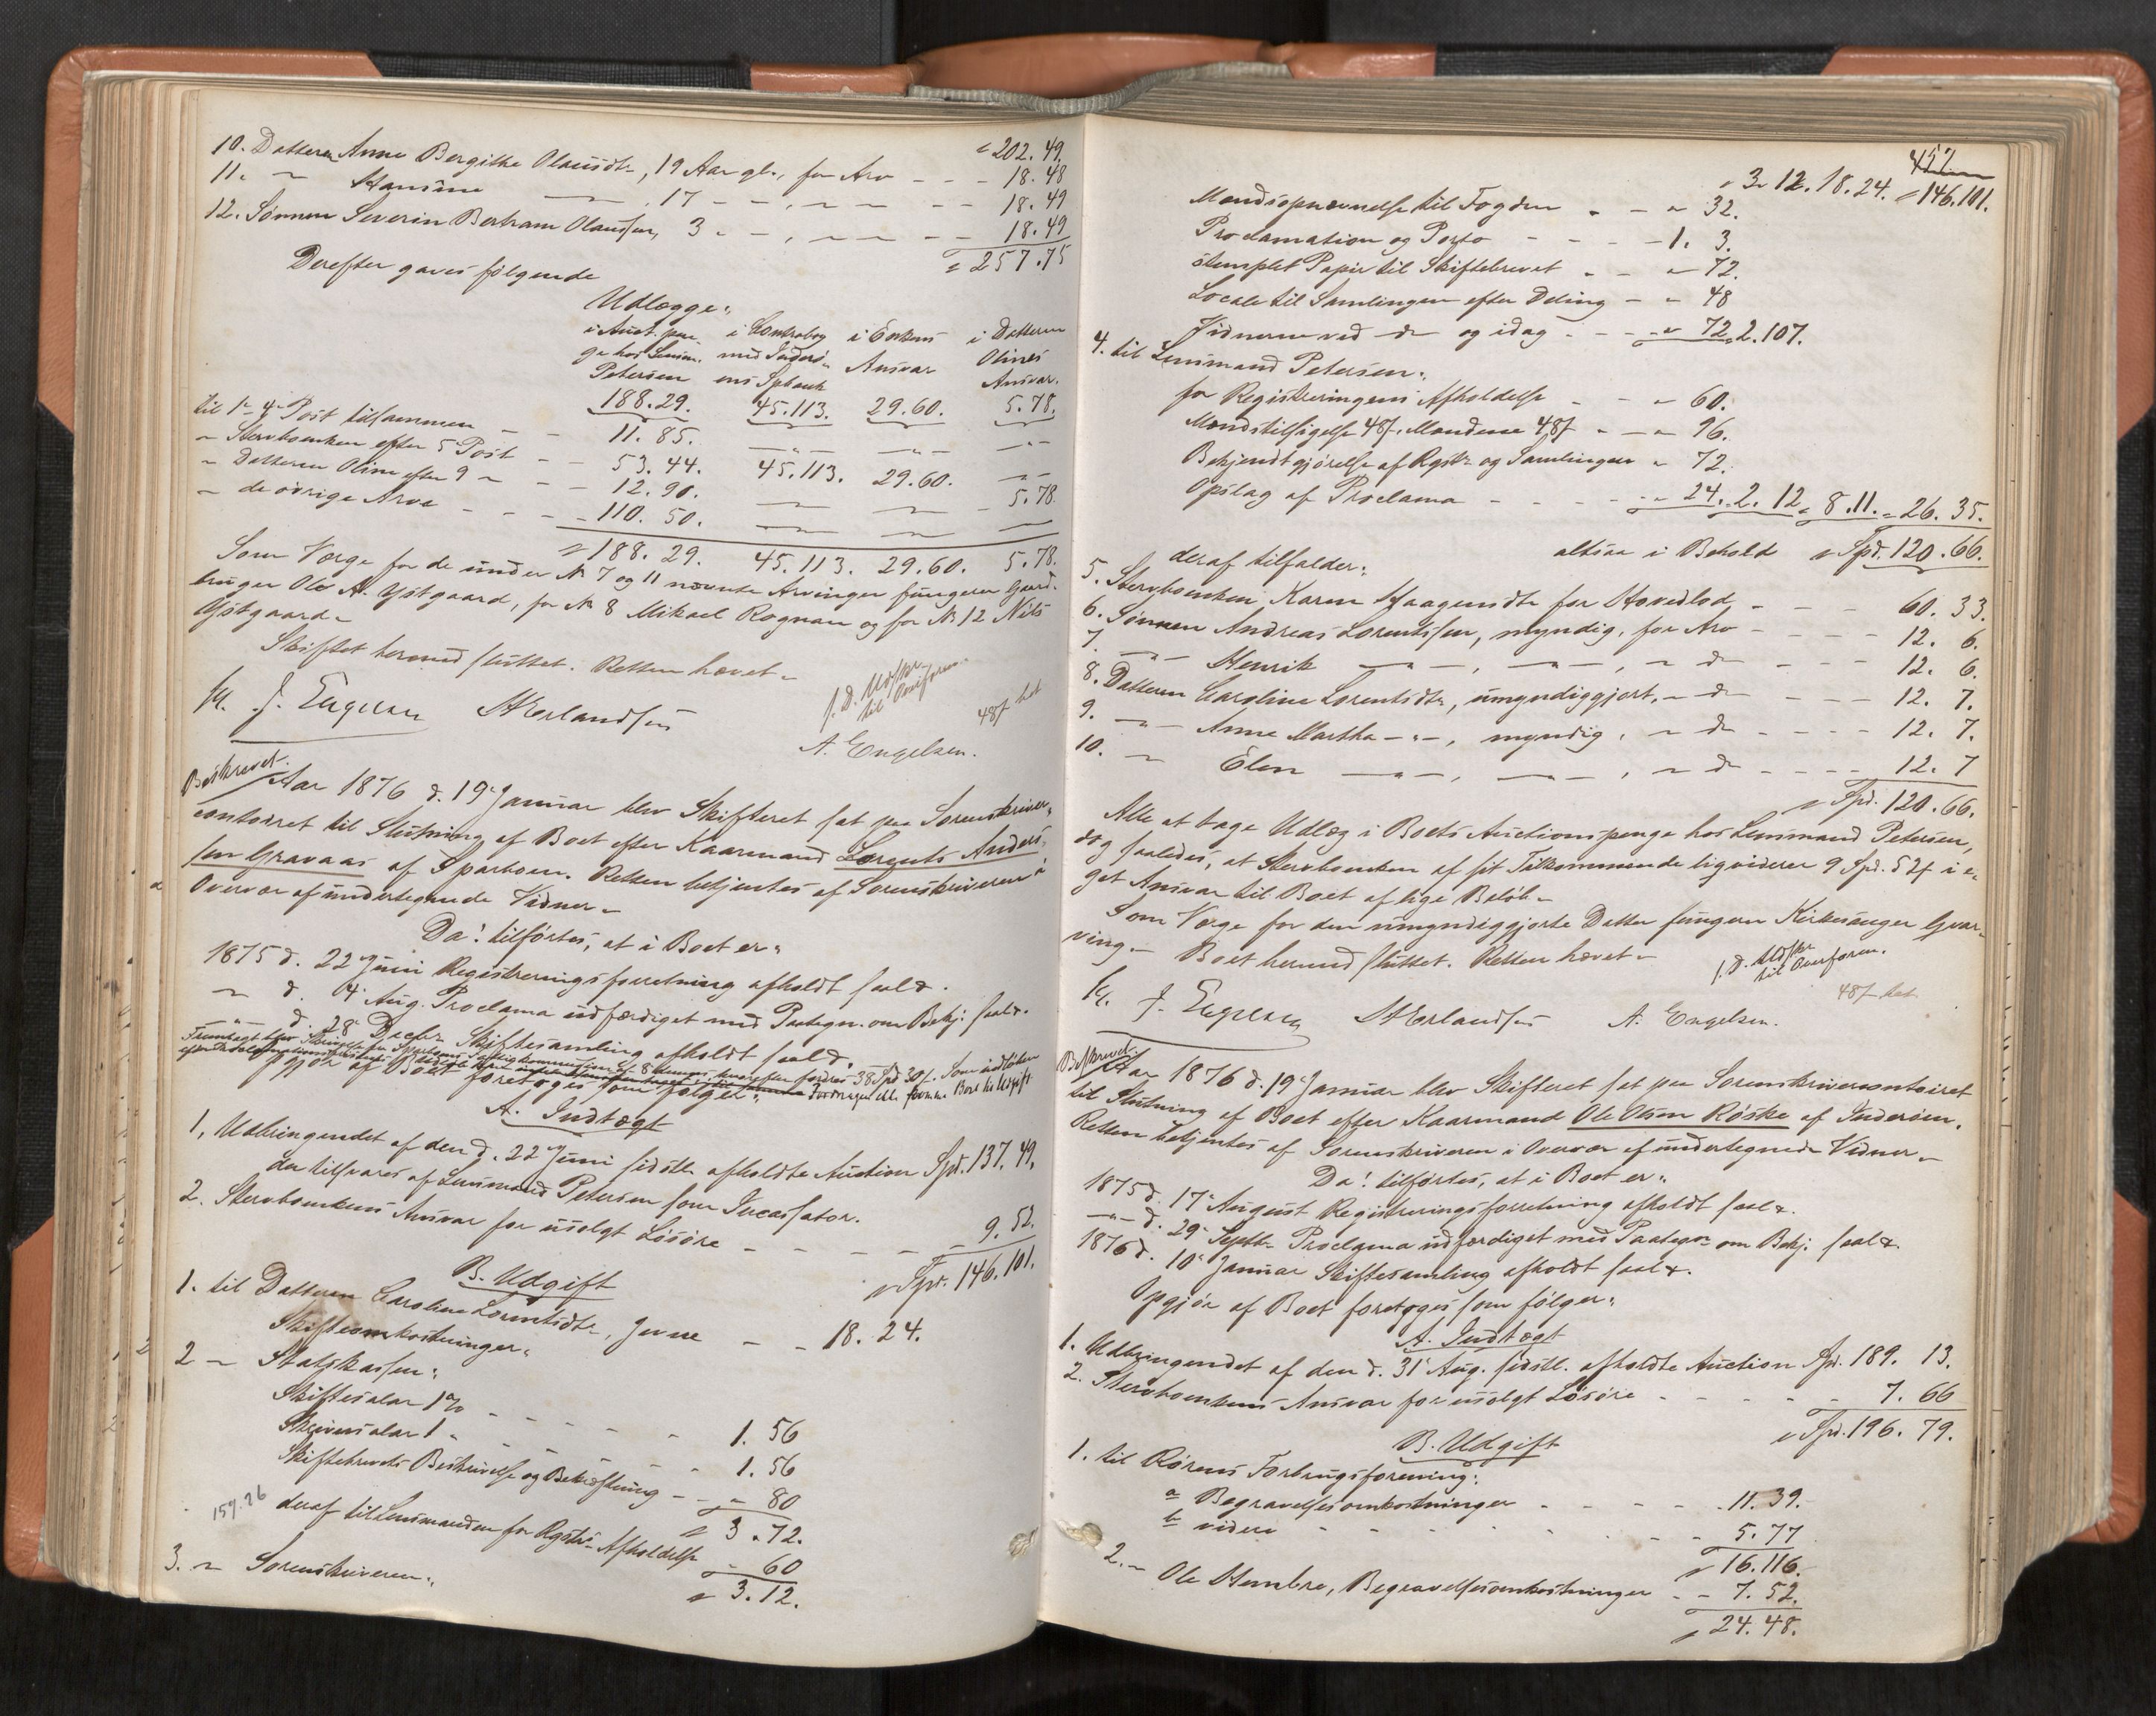 202. 49.
10. Datteren Anne Bergithe Olausdtr, 19 Aar gl., for Arv - - - 18. 48
11. " Hansine " , 17 - - , " " - - 18. 49
12. Sønnen Severin Bertram Olaussen, 3 - - , " " - - 18. 49
257. 75
Derefter gaves følgende
Udlægge:
i Auct. pen- i Contrabog i Enkens i Datteren
ge hos Lensm. med Inderø- Ansvar Olines
Petersen ens Spbank Ansvar.
188. 29. 45. 113. 29. 60. 5. 78.
til 1-4 Post tilsammen - - 11. 85.
" Stervboenken efter 5 Post - - 53. 44. 45. 113. 29. 60.
" Datteren Oline efter 9 " - - 12. 90. 5. 78
" de øvrige Arve - - - 110. 50.
188. 29. 45. 113. 29. 60. 5. 78.
Som Værge for de under No 7 og 11 nævnte Arvinger fungerer Gaard-
bruger Ole A. Ystgaard, for No 8 Mikael Rognan og for No 12 Nils
Ystgaard.
Skiftet hermed sluttet. Retten hævet.
J. Engelsen M Erlandsen A. Engelsen.
Beskrevet.
Aar 1876 d. 19 Januar blev Skifteret sat paa Sorenskriver-
contoiret til Slutning af Boet efter Kaarmand Lorents Anders-
sen Gravaas af Sparboen. Retten betjentes af Sorenskriveren i
Overvær af undertegnede Vidner.
Da! tilførtes, at i Boet er:
1875 d. 22 Juni Registreringsforretning afholdt saal.
" d. 4 Aug. Proclama udfærdiget med Paategn. om Bekj. saal.
" d. 28 Decbr Skiftesamling afholdt saal.
Opgjør af Boet foretoges som følger:
A. Indtægt
1. Udbringendet af den d. 22 Juni sidstl. afholdte Auction Spd. 137. 49.
der tilsvares af Lensmand Petersen som Incassator.
2. Stervboenkens Ansvar for usolgt Løsøre - - - - 9. 52.
Spd. 146. 101.
B. Udgift
1. til Datteren Caroline Lorentsdtr, Jevne - - 18. 24.
Skifteomkostninger:
2 " Statskassen:
Skiftesalar 1% - - - - - 1. 56
Skriversalar 1 " - - - - 1. 56
Skiftebrevets Beskrivelse og Bekræftning - - " 80
3. 72.
159. 26
deraf til Lensmanden for Rgstr. Afholdelse " 60
3. 12.
3. " Sorenskriveren:
452
3. 12. 18. 24. 146. 101.
Mandsopnævnelse til Fogden - - " 32.
Proclamation og Porto - - - 1. 3.
stemplet Papir til Skiftebrevet - - " 72.
Locale til Samlingen efter Deling - " 48
Vidnerne ved do og idag - - - " 72. 2. 107.
4. til Lensmand Petersen:
for Registreringens Afholdelse - - " 60.
Mandstilsigelse 48 f. Mændene 48 f - - " 96.
Bekjendtgjørelse af Rgstr. og Samlingen " 72.
Opslag af Proclama - - - - " 24. 2. 12. 8. 11. 26. 35.
altsaa i Behold Spd. 120. 66.
deraf tilfalder:
5. Stervboenken Karen Haagensdtr for Hovedlod - - - 60. 33.
6. Sønnen Andreas Lorentssen, myndig, for Arv - - - - 12. 6.
7. " Henrik " , " , " do - - - 12. 6.
8. Datteren Caroline Lorentsdtr, umyndiggjort, " do - - - 12. 7.
9. " Anne Martha " , myndig, " do - - - - 12. 7.
10. " Elen " , " , " do - - - - 12. 7
Spd. 120. 66.
Alle at tage Udlæg i Boets Auctionspenge hos Lensmand Petersen,
dog saaledes, at Stervboenken af sit Tilkommende liqviderer 9 Spd. 52 f i e-
get Ansvar til Boet af lige Beløb.
Som Værge for den umyndiggjorte Datter fungerer Kirkesanger Gvar-
ving. Boet hermed sluttet. Retten hævet.
J. Engelsen M Erlandsen A. Engelsen.
Beskrevet.
Aar 1876 d. 19 Januar blev Skifteret sat paa Sorenskrivercontoiret
til Slutning af Boet efter Kaarmand Ole Olsen Røske af Inderøen.
Retten betjentes af Sorenskriveren i Overvær af undertegnede Vidner.
Da! tilførtes, at i Boet er:
1875 d. 17 August Registreringsforretning afholdt saal.
" d. 29 Septbr Proclama udfærdiget med Paategn. om Bekj. saal.
1876 d. 10 Januar Skiftesamling afholdt saal.
Opgjør af Boet foretoges som følger:
A. Indtægt
1. Udbringendet af den d. 31 Aug. sidstl. afholdte Auction Spd. 189. 13.
2. Stervboenkens Ansvar for usolgt Løsøre - - - - - 7. 66
Spd. 196. 79.
B. Udgift
1. til Rørens Forbrugsforening:
a Begravelsesomkostninger - - - - 11. 39.
b videre - - - - - - - 5. 77
16. 116.
2. " Ole Hembre, Begravelsesomkostninger - - 7. 52.
24. 48.